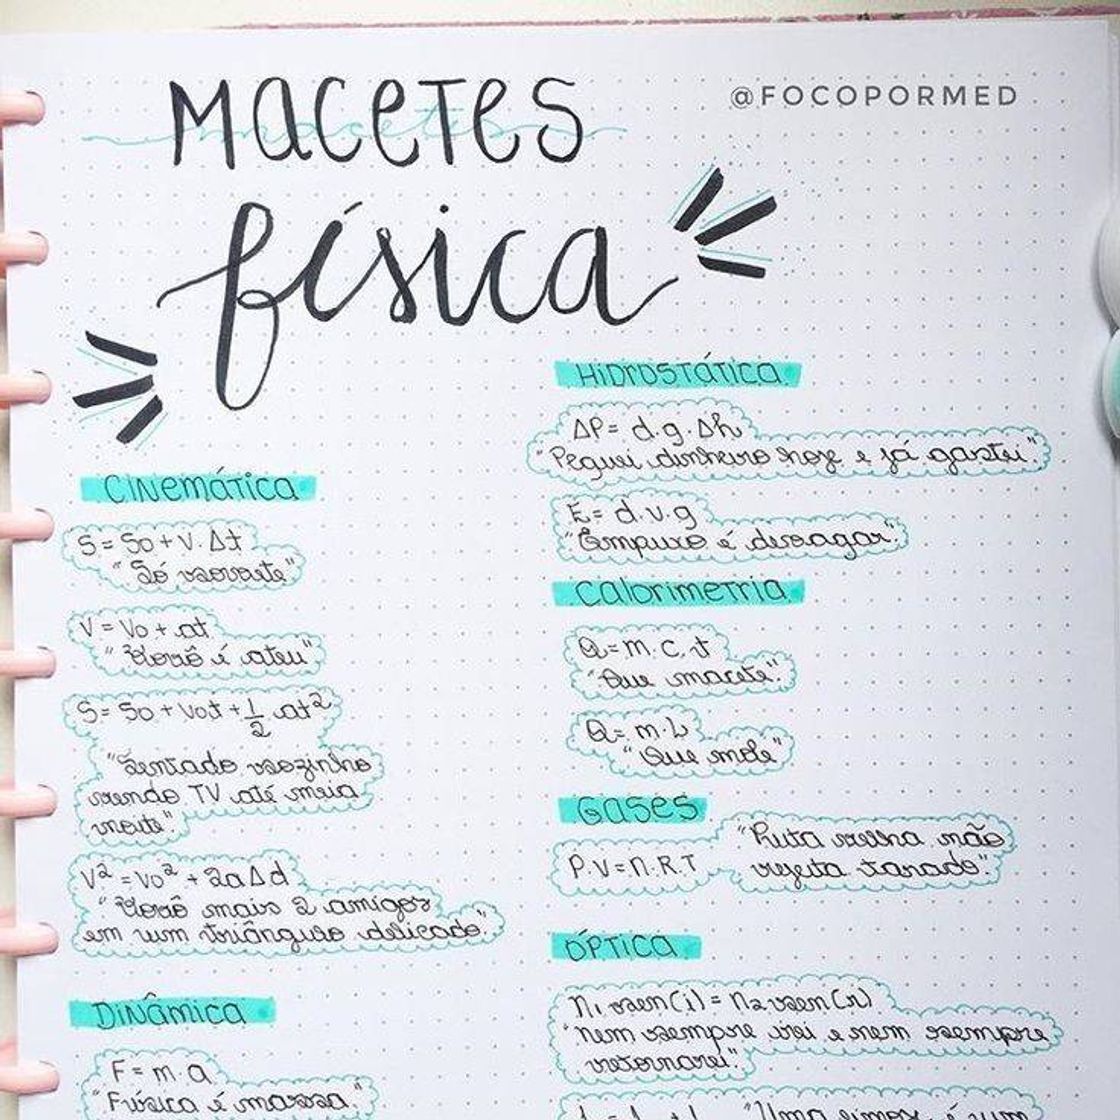 Macetes
física
@FOCOPORMED
Cinemática
S = So + V. Δt
"Só sorvete"
V = Vo + at
"Vovô é ateu"
S = So + Vot + 1/2 at²
"Sentado sozinho
vendo TV até meia
noite".
V² = Vo² + 2aΔd
"Vovô mais 2 amigos
em um triângulo delicado."
Dinâmica
F = m. a
"Física é massa."
Hidrostática
ΔP = d. g. Δh
"Peguei dinheiro hoje e já gastei."
E = d. v. g
"Empuxo é devagar".
Calorimetria
Q = m. c. t
"Que macete".
Q = m. L
"Que mole"
Gases
P.V = n.R.T
"Puta velha não
rejeita tarado".
Óptica
n₁ sen(i) = n₂ sen(r)
"nem sempre irei e nem sempre
retornarei".